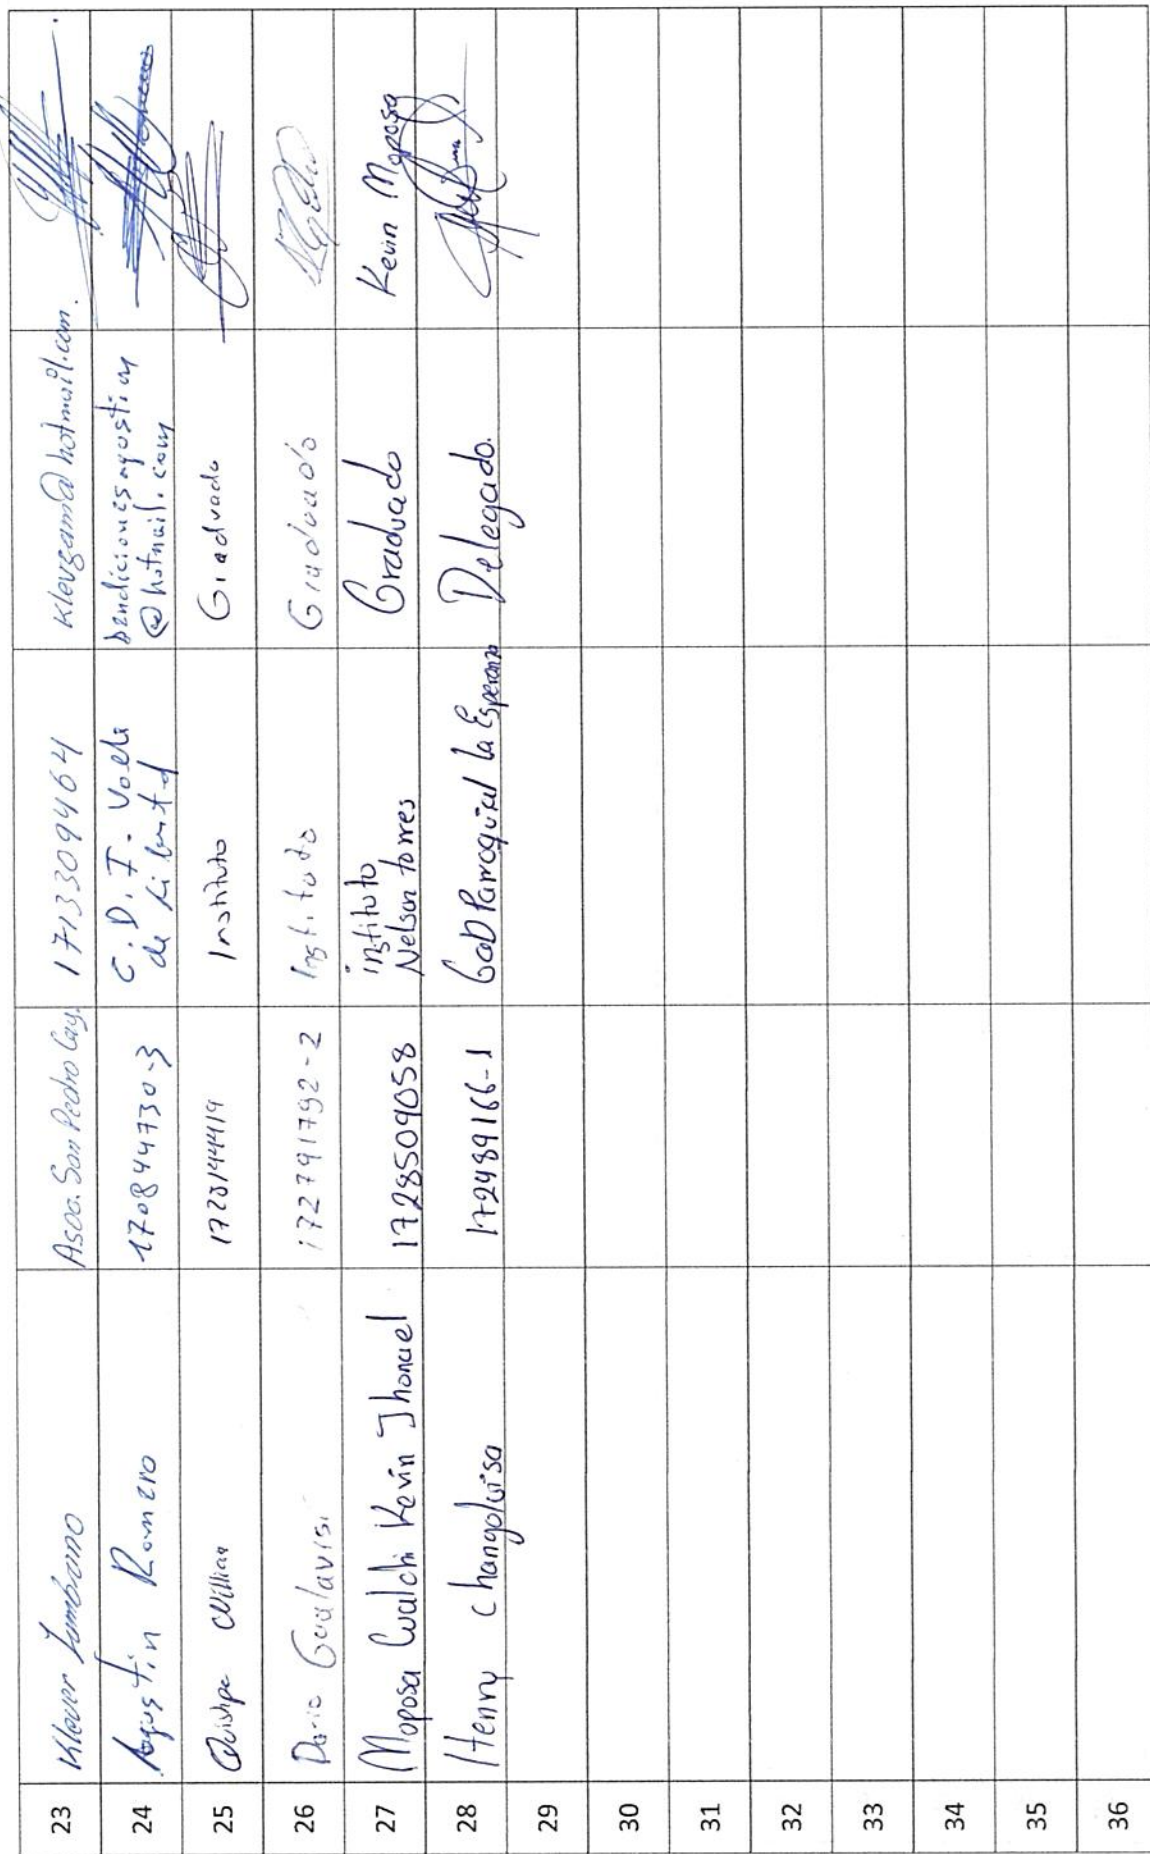 23 Klever Zambrano Asoc. San Pedro Cay. 1713309464 klevzam@hotmail.com.
24 Agustin Romero 170844730-3 C.D.I. Valle
de Libertad bendicionesagustin
@hotmail.com
25 Quishpe Willian Instituto Graduado
26 Dario Gualavisi 172791792-2 Instituto Graduado
27 Moposa Cualchi Kevin Jhonael 1728509058 instituto
Nelson torres Graduado Kevin Moposa
28 Henry Changoluisa 172489166-1 GaD Parroquial la Esperanza Delegado.
29
30
31
32
33
34
35
36